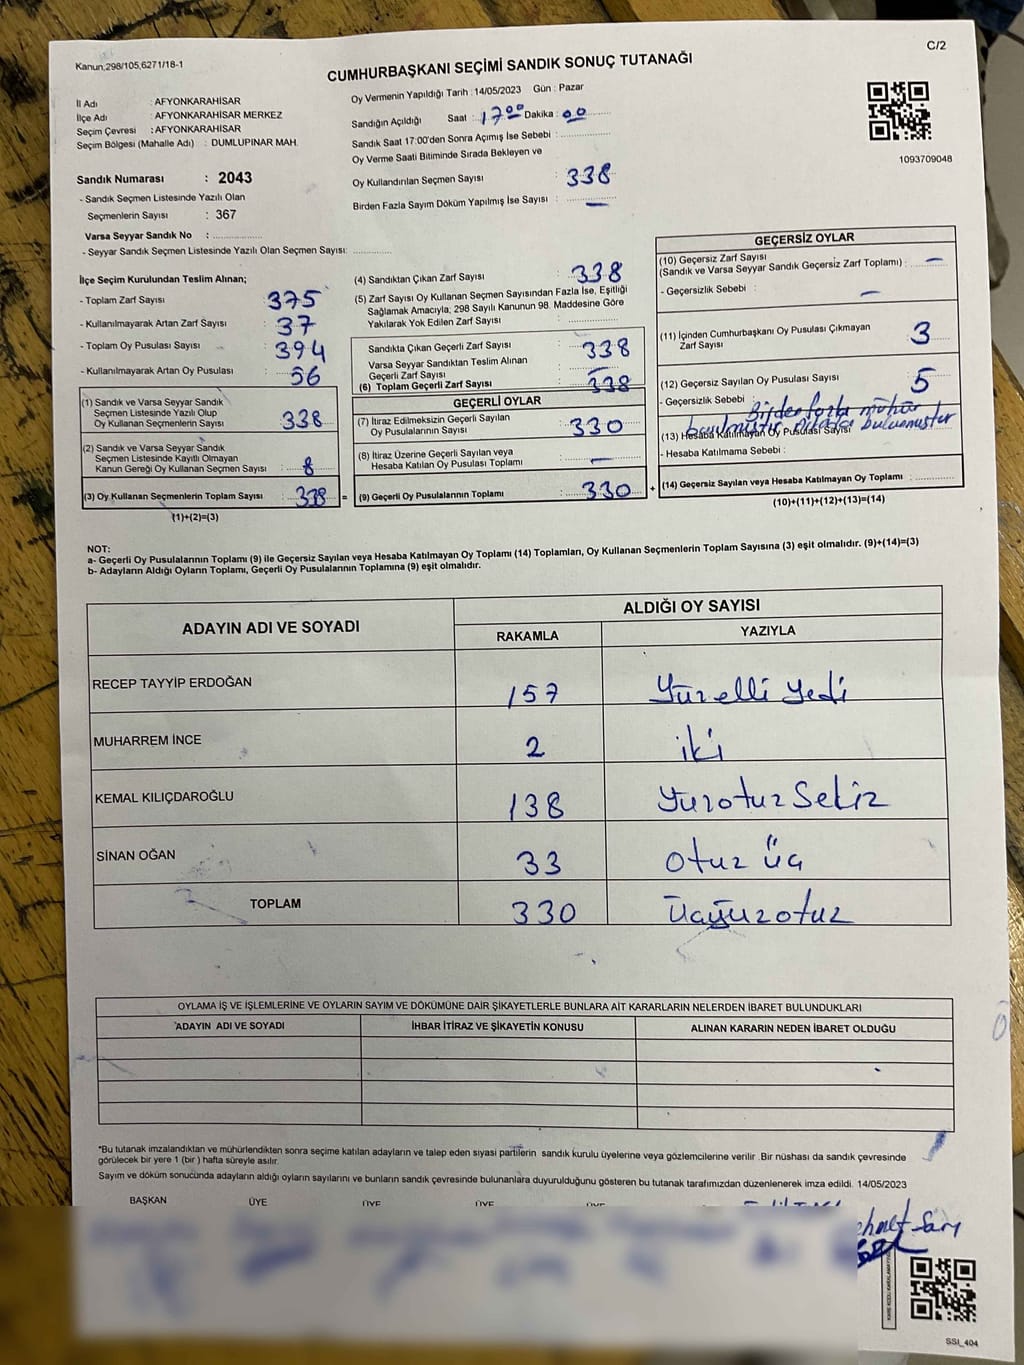 Kanun;298/105,6271/18-1
C/2
CUMHURBAŞKANI SEÇİMİ SANDIK SONUÇ TUTANAĞI
İl Adı : AFYONKARAHİSAR
İlçe Adı : AFYONKARAHİSAR MERKEZ
Seçim Çevresi : AFYONKARAHİSAR
Seçim Bölgesi (Mahalle Adı) : DUMLUPINAR MAH.
Sandık Numarası : 2043
- Sandık Seçmen Listesinde Yazılı Olan
Seçmenlerin Sayısı : 367
Varsa Seyyar Sandık No :
- Seyyar Sandık Seçmen Listesinde Yazılı Olan Seçmen Sayısı:
Oy Vermenin Yapıldığı Tarih : 14/05/2023 Gün : Pazar
Sandığın Açıldığı Saat : 17 00 Dakika : 00
Sandık Saat 17:00'den Sonra Açımış İse Sebebi :
Oy Verme Saati Bitiminde Sırada Bekleyen ve
Oy Kullandırılan Seçmen Sayısı : 338
Birden Fazla Sayım Döküm Yapılmış İse Sayısı : —
1093709048
İlçe Seçim Kurulundan Teslim Alınan;
- Toplam Zarf Sayısı : 375
- Kullanılmayarak Artan Zarf Sayısı : 37
- Toplam Oy Pusulası Sayısı : 394
- Kullanılmayarak Artan Oy Pusulası : 56
(1) Sandık ve Varsa Seyyar Sandık
Seçmen Listesinde Yazılı Olup
Oy Kullanan Seçmenlerin Sayısı : 338
(2) Sandık ve Varsa Seyyar Sandık
Seçmen Listesinde Kayıtlı Olmayan
Kanun Gereği Oy Kullanan Seçmen Sayısı : 8
(3) Oy Kullanan Seçmenlerin Toplam Sayısı : 338 =
(1)+(2)=(3)
(4) Sandıktan Çıkan Zarf Sayısı : 338
(5) Zarf Sayısı Oy Kullanan Seçmen Sayısından Fazla İse, Eşitliği
Sağlamak Amacıyla; 298 Sayılı Kanunun 98. Maddesine Göre
Yakılarak Yok Edilen Zarf Sayısı :
Sandıkta Çıkan Geçerli Zarf Sayısı : 338
Varsa Seyyar Sandıktan Teslim Alınan
Geçerli Zarf Sayısı : —
(6) Toplam Geçerli Zarf Sayısı : 338
GEÇERLİ OYLAR
(7) İtiraz Edilmeksizin Geçerli Sayılan
Oy Pusulalarının Sayısı : 330
(8) İtiraz Üzerine Geçerli Sayılan veya
Hesaba Katılan Oy Pusulası Toplamı : —
(9) Geçerli Oy Pusulalarının Toplamı : 330 +
GEÇERSİZ OYLAR
(10) Geçersiz Zarf Sayısı
(Sandık ve Varsa Seyyar Sandık Geçersiz Zarf Toplamı) : —
- Geçersizlik Sebebi : —
(11) İçinden Cumhurbaşkanı Oy Pusulası Çıkmayan
Zarf Sayısı : 3
(12) Geçersiz Sayılan Oy Pusulası Sayısı : 5
- Geçersizlik Sebebi : Birden fazla mühür
bulunmuştur
(13) Hesaba Katılmayan Oy Pusulası Sayısı
- Hesaba Katılmama Sebebi :
(14) Geçersiz Sayılan veya Hesaba Katılmayan Oy Toplamı :
(10)+(11)+(12)+(13)=(14)
NOT:
a- Geçerli Oy Pusulalarının Toplamı (9) ile Geçersiz Sayılan veya Hesaba Katılmayan Oy Toplamı (14) Toplamları, Oy Kullanan Seçmenlerin Toplam Sayısına (3) eşit olmalıdır. (9)+(14)=(3)
b- Adayların Aldığı Oyların Toplamı, Geçerli Oy Pusulalarının Toplamına (9) eşit olmalıdır.
ADAYIN ADI VE SOYADI ALDIĞI OY SAYISI
RAKAMLA YAZIYLA
RECEP TAYYİP ERDOĞAN 157 Yüzelli yedi
MUHARREM İNCE 2 iki
KEMAL KILIÇDAROĞLU 138 Yüzotuz Sekiz
SİNAN OĞAN 33 Otuz üç
TOPLAM 330 üçyüzotuz
OYLAMA İŞ VE İŞLEMLERİNE VE OYLARIN SAYIM VE DÖKÜMÜNE DAİR ŞİKAYETLERLE BUNLARA AİT KARARLARIN NELERDEN İBARET BULUNDUKLARI
ADAYIN ADI VE SOYADI İHBAR İTİRAZ VE ŞİKAYETİN KONUSU ALINAN KARARIN NEDEN İBARET OLDUĞU
*Bu tutanak imzalandıktan ve mühürlendikten sonra seçime katılan adayların ve talep eden siyasi partilerin sandık kurulu üyelerine veya gözlemcilerine verilir .Bir nüshası da sandık çevresinde
görülecek bir yere 1 (bir ) hafta süreyle asılır.
Sayım ve döküm sonucunda adayların aldığı oyların sayılarını ve bunların sandık çevresinde bulunanlara duyurulduğunu gösteren bu tutanak tarafımızdan düzenlenerek imza edildi. 14/05/2023
BAŞKAN ÜYE ÜYE ÜYE ÜYE
SSI_404